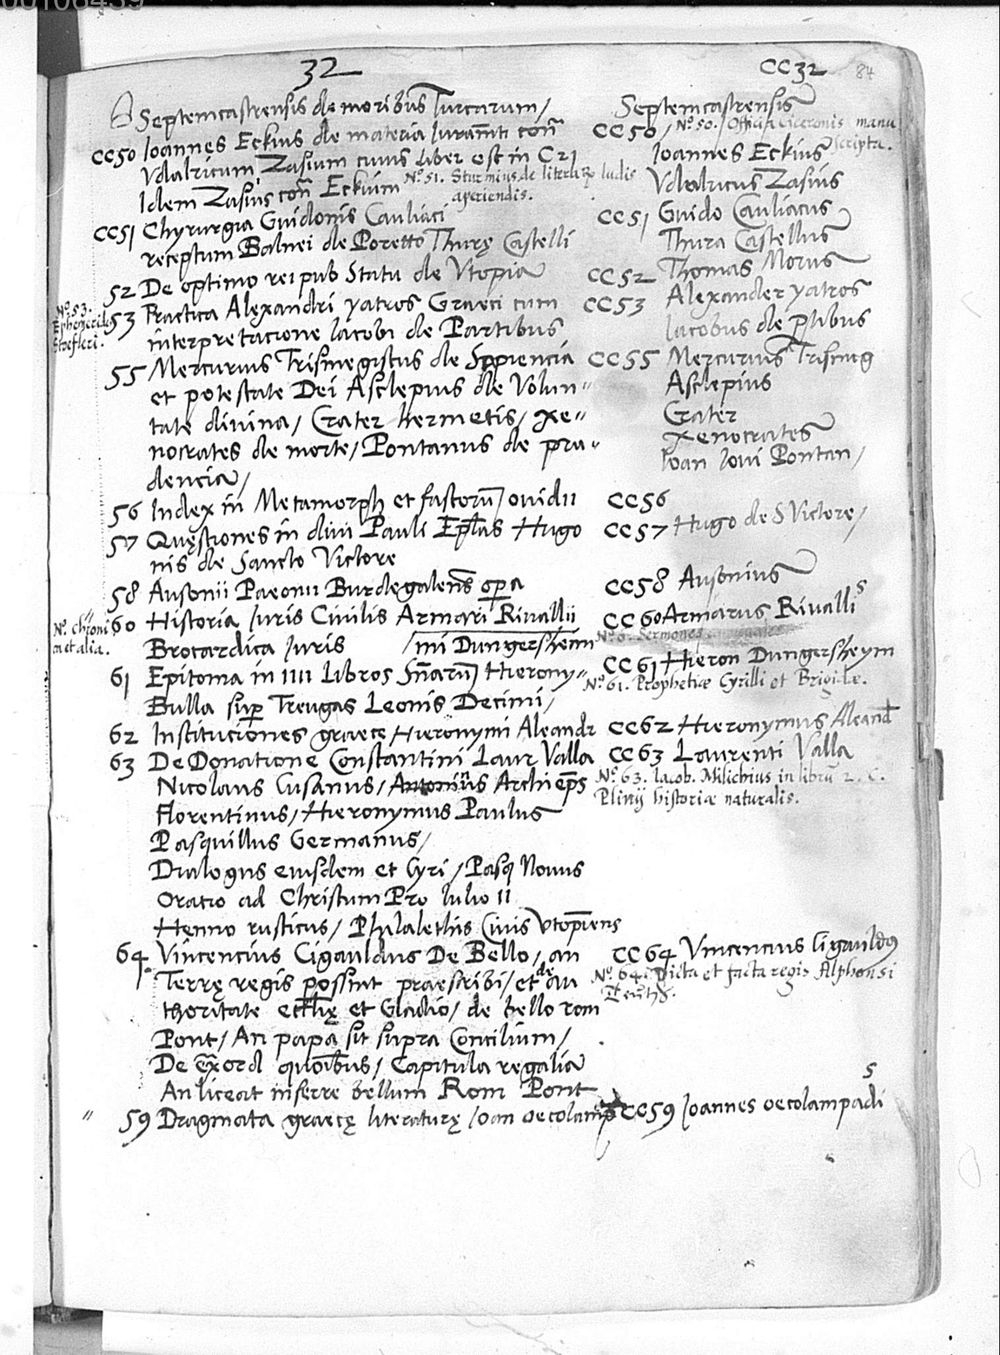 32
CC32
84
Septemcastrensis de moribus Turcarum /
Septemcastrensis
CC50 Ioannes Eckius de materia Iuramti con
CC50 / No. 50. Officia Ciceronis manu scripta.
Vdalricum Zasium cuius liber est in C21
Ioannes Eckius
Idem Zasius con Eckium
No. 51. Sturmius de literar. ludis aperiendis.
Vdalricus Zasius
CC51 Chyrurgia Guidonis Cauliaci
CC51 Guido Cauliacus
receptum Balnei de Poretto Thurę Castelli
Thura Castellus
52 De optimo reipub Statu de Vtopia
CC52 Thomas Morus
No. 53. Ephemerides Stoefleri.
53 Practica Alexandri yatros Graeci cum
CC53 Alexander yatros
interpretacione Iacobi de Partibus
Iacobus de ptibus
55 Mercurius Trismegistus de Sapiencia
CC55 Mercurius Trismeg
et potestate Dei Asclepius de Volun"
Asclepius
tate divina / Crater hermetis / Xe"
Crater
nocrates de morte / Pontanus de pru"
Xenocrates
dencia /
Ioan Iovi Pontan /
56 Index in Metamorph et fastorum ouidii
CC56
57 Quęstiones in divi Pauli Eplas Hugo
CC57 Hugo de S Victore /
nis de Sancto Victore
58 Ausonii Paeonii Burdegalens opa
CC58 Ausonius
60 Historia Iuris Civilis Armari Rivallii
CC60 Armarus Rivallis
Brocardica Iuris
mi Dungersheim
61 Epitoma in IIII Libros Snarum Hierony"
CC61 Hieron Dungersheym
Bulla sup Treugas Leonis Decimi /
No. 61. Prophetiæ Cyrilli et Brigidæ.
62 Instituciones graece Hieronymi Aleandr
CC62 Hieronymus Aleand
63 De Donatione Constantini Laur Valla
CC63 Laurenti Valla
Nicolaus Cusanus / Antonius Archieps
No. 63. Iacob. Milichius in libru 2. C.
Florentinus / Hieronymus Paulus
Plinij historiæ naturalis.
Pasquillus Germanus /
Dialogus eiusdem et Cyri / Pasq Novus
Oratio ad Christum Pro Iulio II
Henno rusticus / Philalethis Civis Vtopiens
64 Vincencius Cigauldus De Bello / an
CC64 Vincencius Cigauldus
Terrę regis possint praescribi / et de au
No. 64. Dicta et facta regis Alphonsi
thoritate ecctię et Gladio / de bello rom
Pont / An papa sit supra Concilium /
De exord quoibus / Capitula regalia
An liceat inferre bellum Rom Pont
" 59 Dragmata graecę literaturę Ioan oecolamp
CC59 Ioannes oecolampadi s